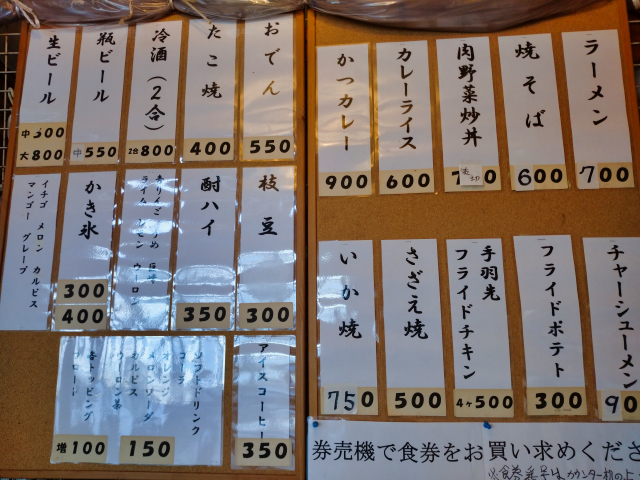 ラーメン
700
焼そば
600
肉野菜炒丼
カレーライス
600
かつカレー
900
チャーシューメン
フライドポテト
300
手羽先
フライドチキン
4ヶ500
さざえ焼
500
いか焼
750
券売機で食券をお買い求めくださ
おでん
550
たこ焼
400
冷酒(2合)
2合800
瓶ビール
中550
生ビール
大800
枝豆
300
酎ハイ
350
かき氷
300
400
イチゴ メロン カルピス
マンゴー グレープ
アイスコーヒー
350
ソフトドリンク
コーラ
オレンジ
メロンソーダ
カルピス
ウーロン茶
150
各トッピング
増100